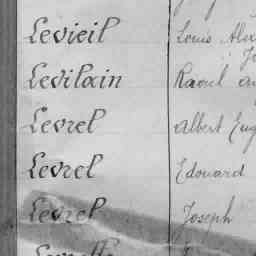 Levieil Louis
Levilain Raoul
Levrel Albert Eug
Levrel Edouard
Levrel Joseph